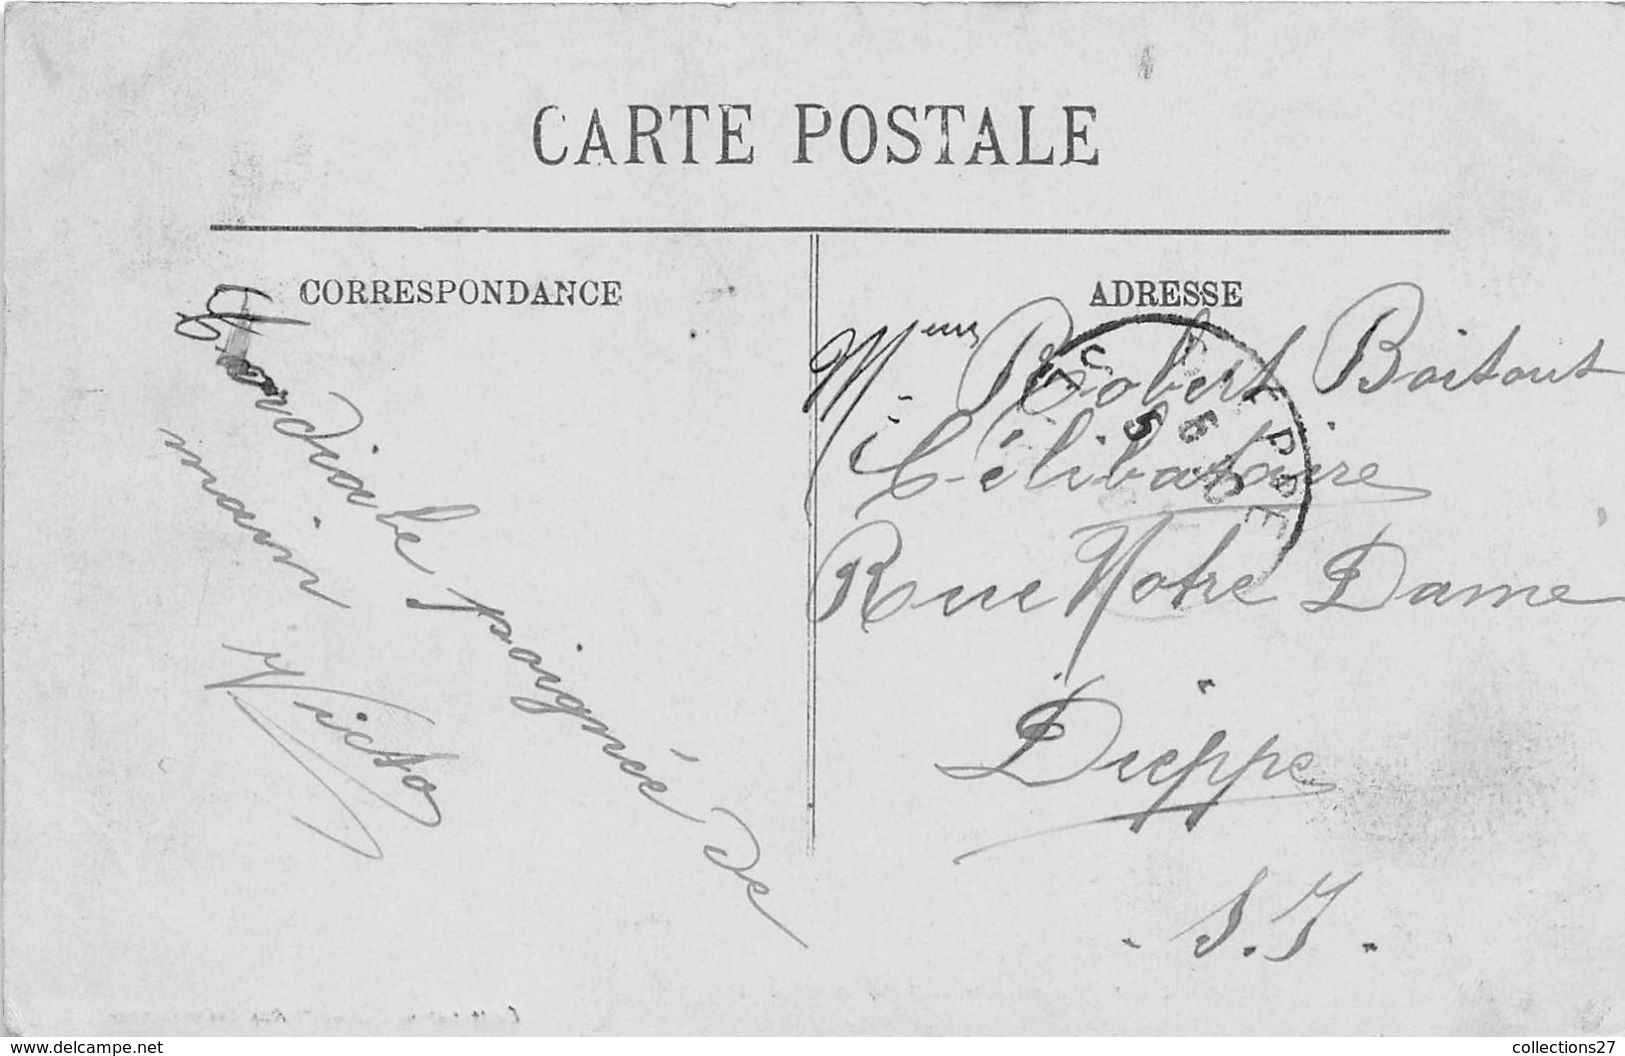 CARTE POSTALE
CORRESPONDANCE
Cordiale poignée de
main
Victo
ADRESSE
Robert Boitout
Célibataire
Rue Notre Dame
Dieppe
S. I.
DIEPPE
5 5
www.delcampe.net
collections27